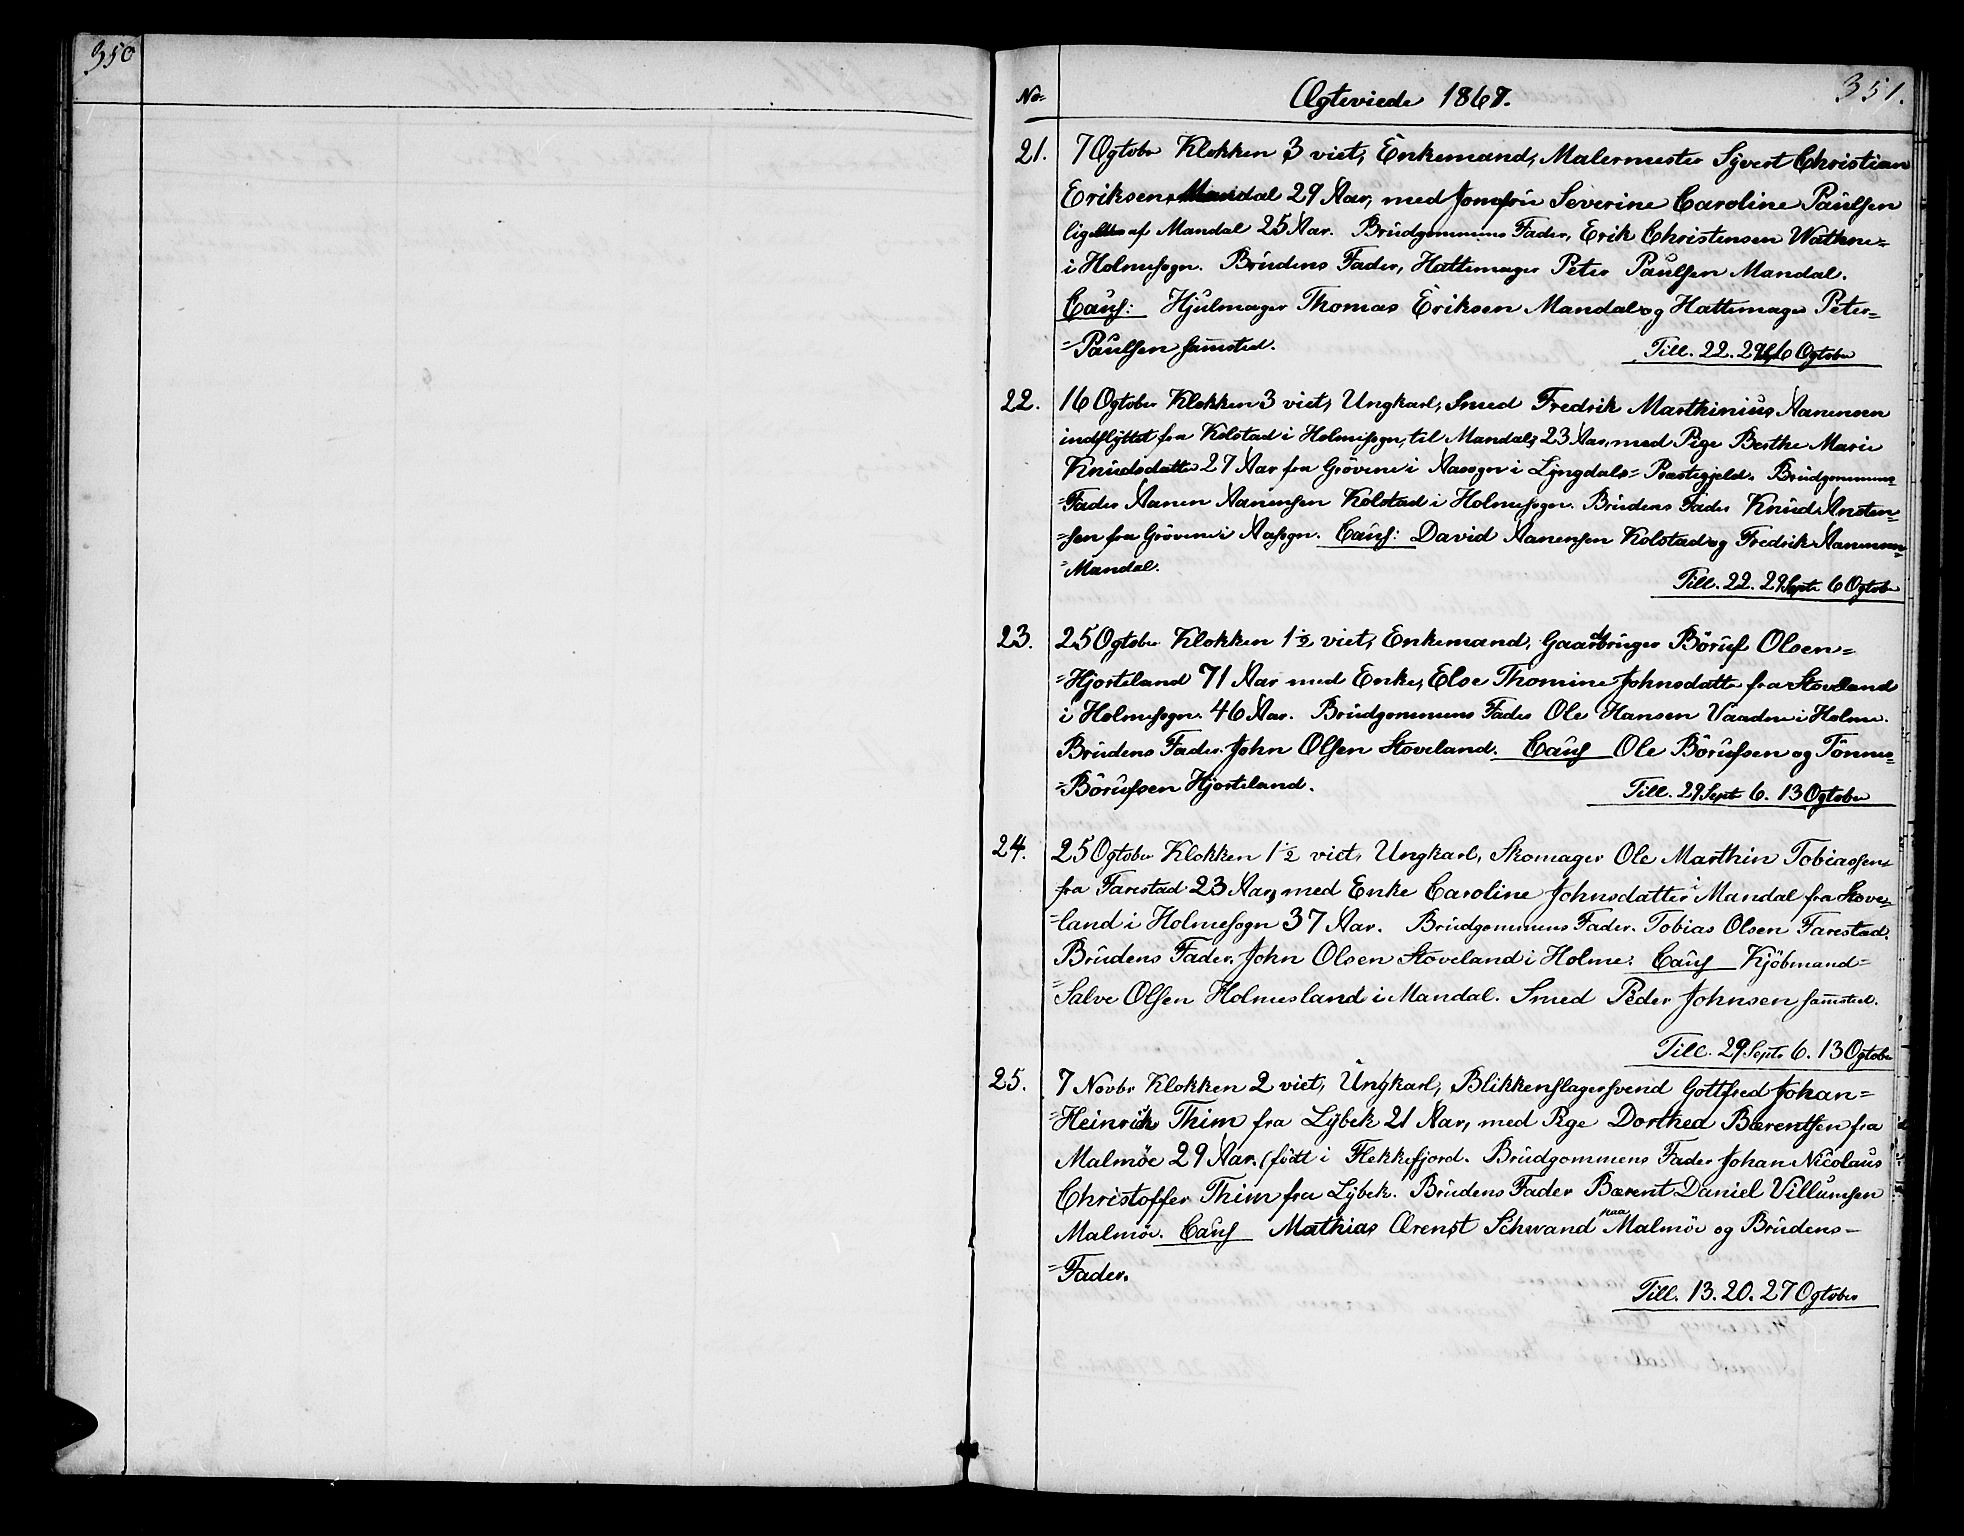 350
351.
No. Ægteviede 1867.
21. 7 Ogtobr Klokken 3 viet, Enkemand, Malermester Sÿvert Christian
Eriksen, Mandal 29 Aar, med Jomfrü Severine Caroline Paülsen
lig af Mandal 25 Aar. Brüdgommens Fader, Erik Christensen Wathne=
i Holmesogn. Brüdens Fader, Hattemager Peter Paülsen Mandal.
Caus: Hjulmager Thomas Eriksen Mandal og Hattemager Peter=
=Paülsen sam̄sted. Till. 22. 29 6 Ogtobr
22. 16 Ogtober Klokken 3 viet, Ungkarl, Smed Fredrik Marthinius Aanensen
indflÿttet fra Kolstad i Holmesogn, til Mandal, 23 Aar, med Pige Berthe Marie
Knüdsdatter 27 Aar fra Grövene i Aasogn i Lÿngdals= Præstegjeld. Brüdgommens=
=Fader Aanen Aanensen Kolstad i Holmesogn. Brüdens Fader Knüd Ansten=
=sen fra Grövene i Aasogn. Caus: David Aanensen Kolstad og Fredrik Aanensen=
=Mandal. Till. 22. 29 Septr 6 Ogtobr
23. 25 Ogtobr Klokken 1½ viet, Enkemand, Gaardbruger Börüf Olsen=
=Hjorteland 71 Aar med Enke, Else Thomine Johnsdatter fra Stoveland
i Holmesogn. 46 Aar. Brüdgommens Fader Ole Hansen Vaadne i Holme.
Brüdens Fader. John Olsen Stoveland. Caus Ole Börüfsen og Tönnes=
=Börufsen Hjorteland. Till. 29 Septr 6. 13 Ogtobr
24. 25 Ogtobr Klokken 1½ viet, Ungkarl, Skomager Ole Marthin Tobiassen
fra Farestad 23 Aar, med Enke Caroline Johnsdatter i Mandal fra Stove=
=land i Holmesogn 37 Aar. Brüdgommens Fader. Tobias Olsen Farestad.
Brüdens Fader, John Olsen Stoveland i Holme. Caus Kjöbmand=
=Salve Olsen Holmesland i Mandal. Smed Peder Johnsen sam̄sted.
Till. 29 Septr 6. 13 Ogtobr
25. 7 Novbr Klokken 2 viet, Üngkarl, Blikkenslagersvend Gottfred Johan=
=Heinrich Thim fra Lÿbek 21 Aar, med Pige Dorthea Bærentsen fra
Malmöe 29 Aar. (födt i Flekkefjord. Brüdgommens Fader Johan Nicolaüs
Christoffer Thim fra Lÿbek. Brüdens Fader Bærent Daniel Villümsen
Malmöe. Caus Mathias Ærenst Schwand paa Malmöe og Brüdens=
=Fader.
Till. 13. 20. 27 Ogtober